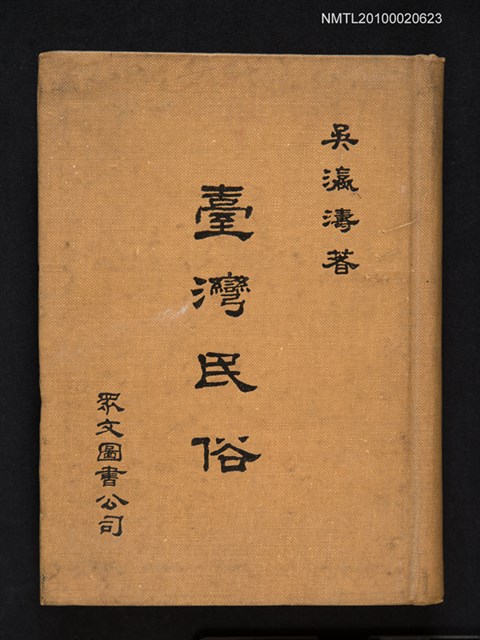 NMTL20100020623
吳瀛濤著
臺灣民俗
眾文圖書公司